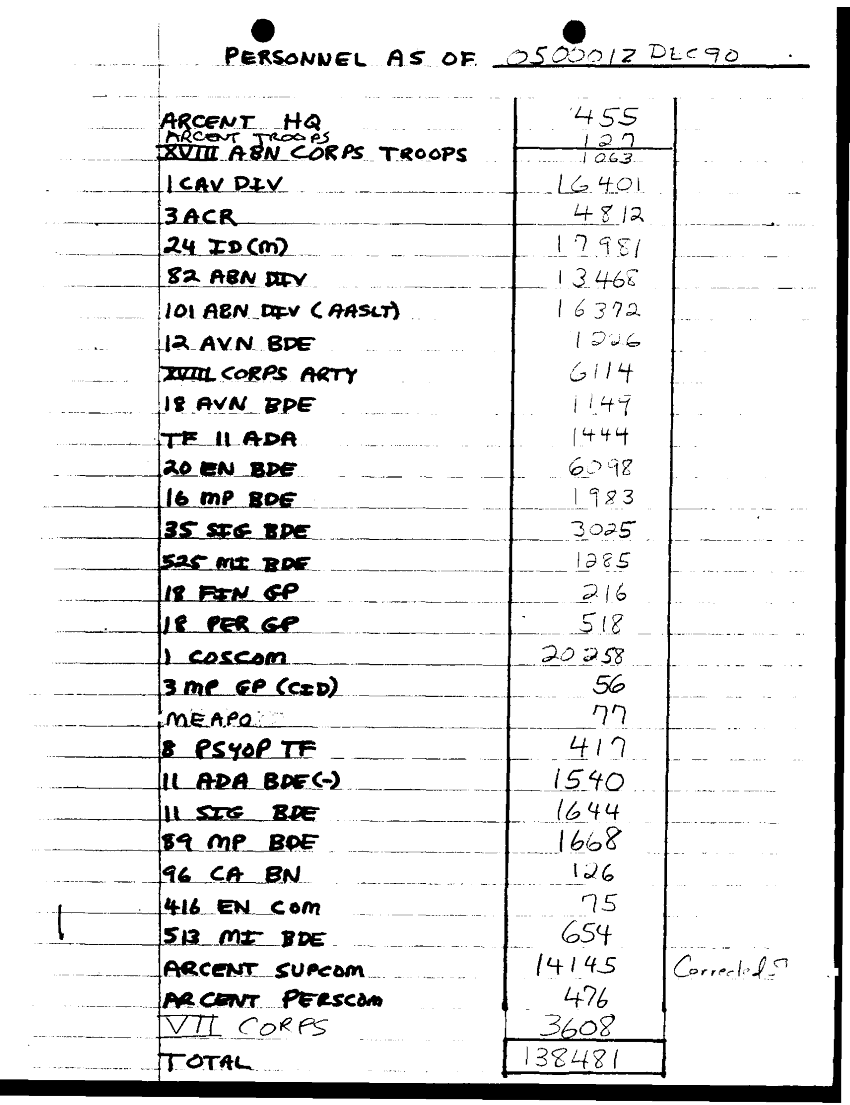 PERSONNEL AS OF 050001Z DEC 90
ARCENT HQ 455
ARCENT TROOPS 127
XVIII ABN CORPS TROOPS 1063
1 CAV DIV 16401
3 ACR 4812
24 ID (M) 17981
82 ABN DIV 13468
101 ABN DIV (AASLT) 16372
12 AVN BDE
XVIII CORPS ARTY 6114
18 AVN BDE 1149
TF 11 ADA 1444
20 EN BDE 6098
16 MP BDE 1983
35 SIG BDE 3025
525 MI BDE 1285
18 FIN GP 216
18 PER GP 518
1 COSCOM 20258
3 MP GP (CID) 56
MEAPO 77
8 PSYOP TF 417
11 ADA BDE (-) 1540
11 SIG BDE 1644
89 MP BDE 1668
96 CA BN 126
416 EN COM 75
513 MI BDE 654
ARCENT SUPCOM 14145 Corrected
ARCENT PERSCOM 476
VII CORPS 3608
TOTAL 138481